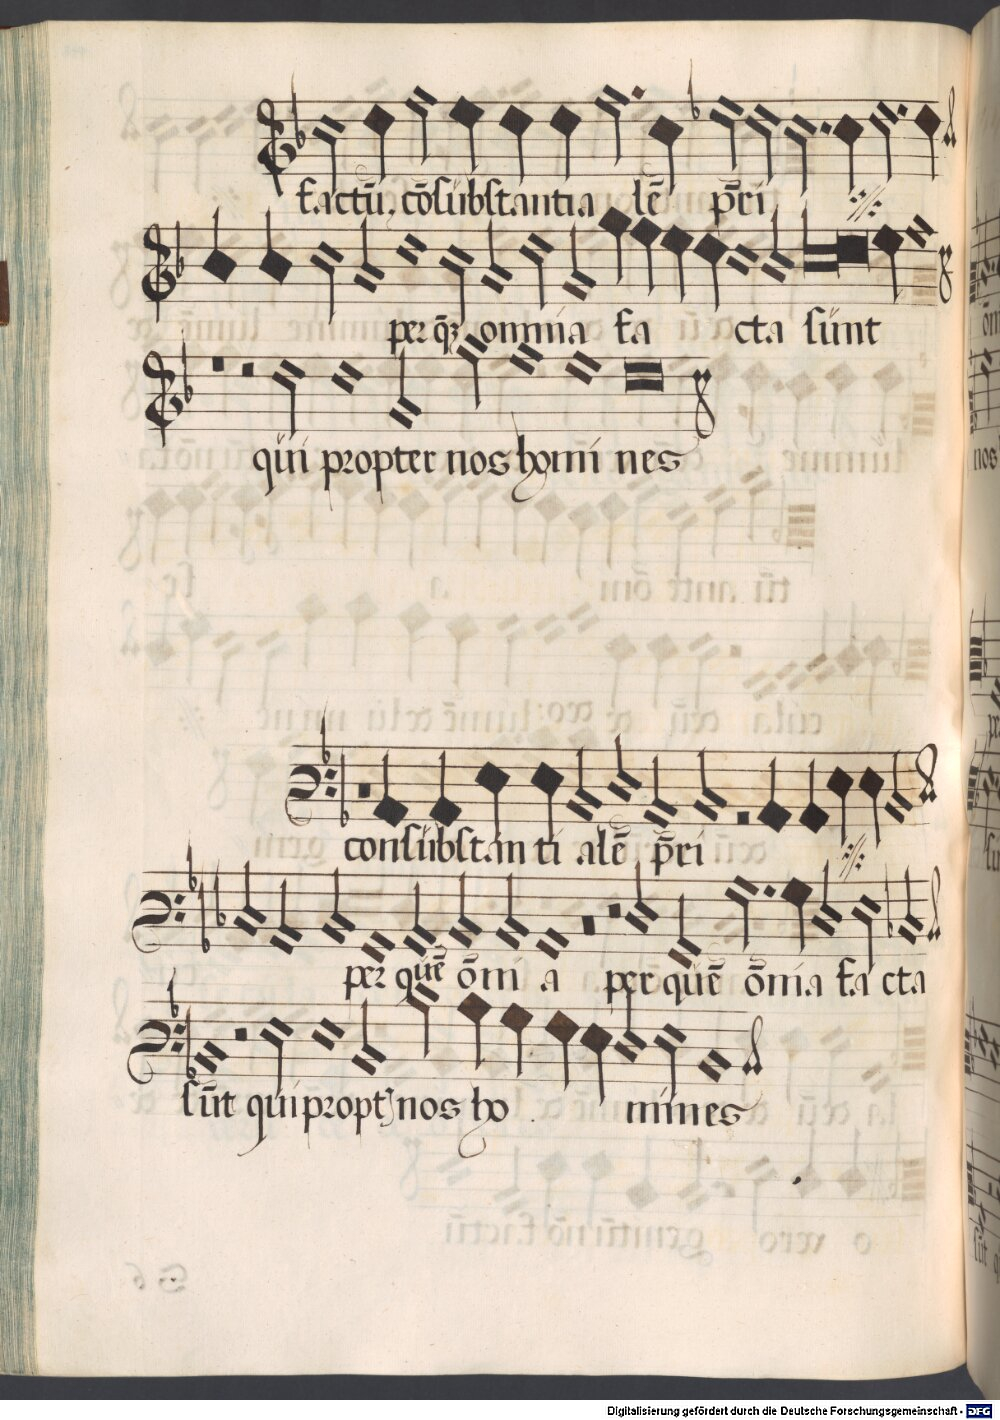 factū, cōsubstantia lē p̄ri ·//·
per q̄ȝ omnia fa cta sunt
qui propter nos homi nes
consubstan ti alē p̄ri ·//·
per quē ōni a per quē ōnia fa cta
sūt qui propt) nos ho mines
Digitalisierung gefördert durch die Deutsche Forschungsgemeinschaft - DFG